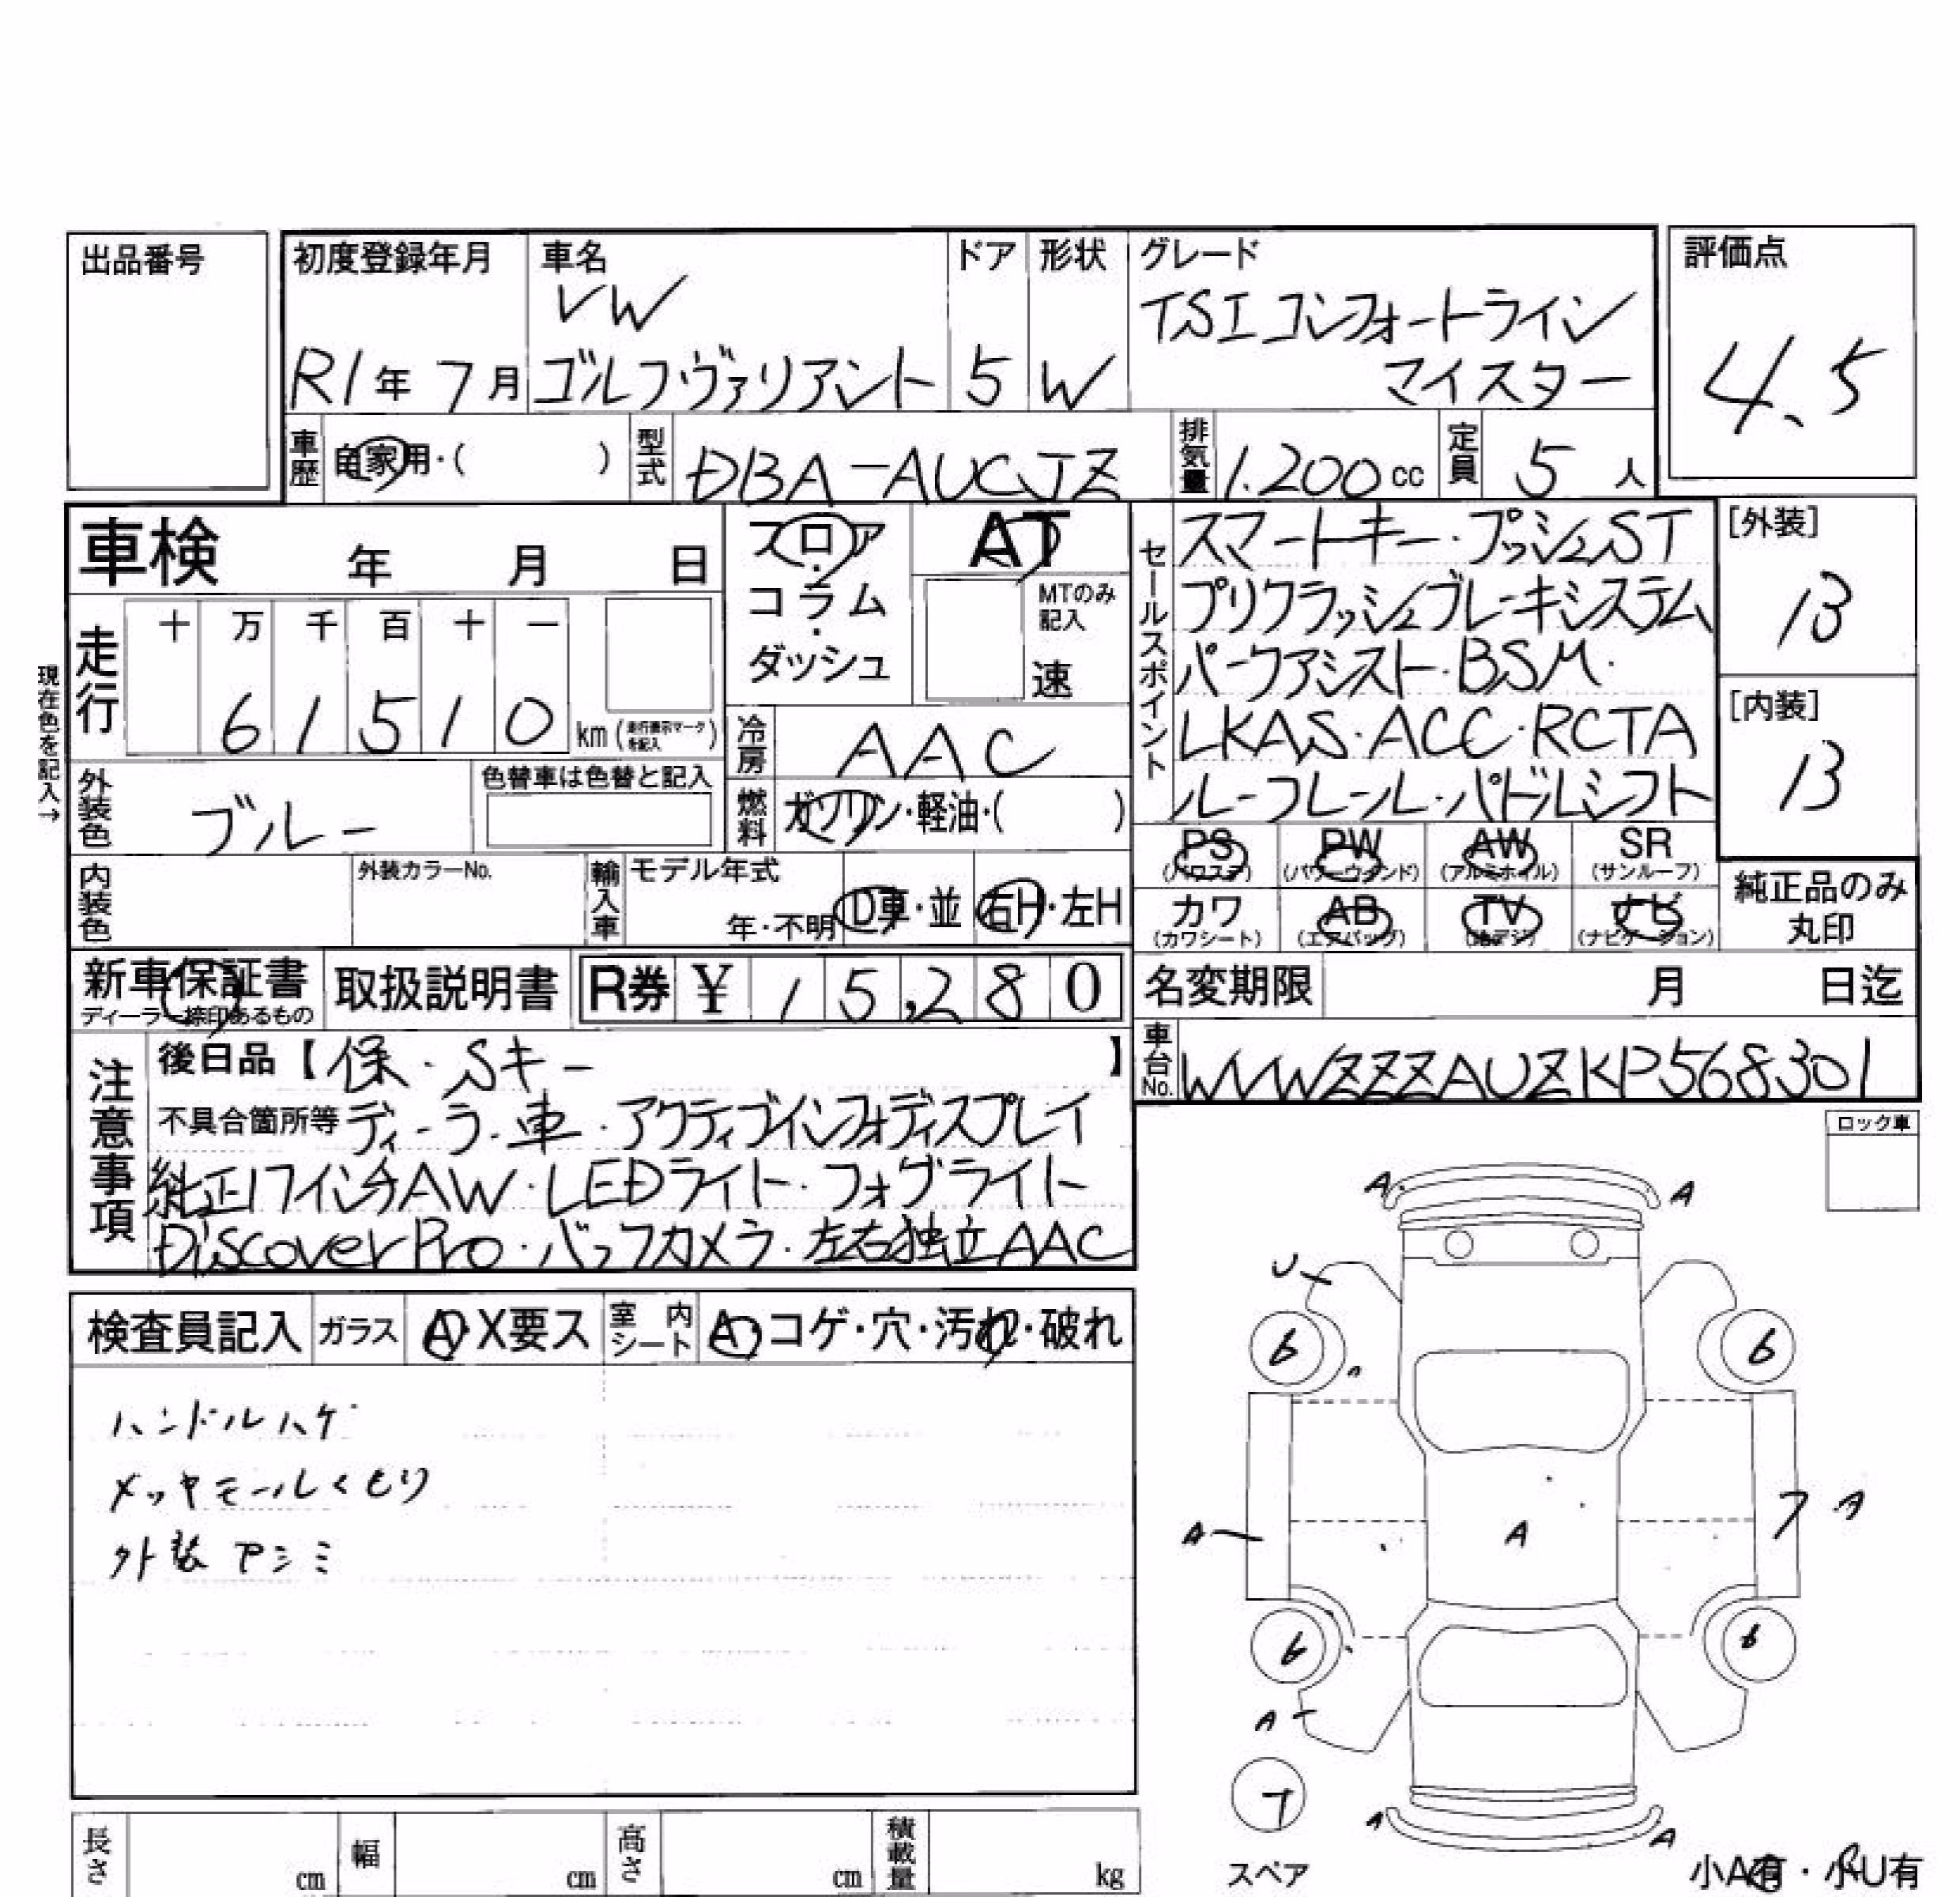 出品番号
初度登録年月 車名 ドア 形状 グレード 評価点
VW TSI コンフォートライン
R1年 7月 ゴルフヴァリアント 5 W マイスター 4.5
車歴 自家用・( ) 型式 DBA-AUCJZ 排気量 1.200cc 定員 5人
車検 年 月 日
フロア・コラム・ダッシュ
AT
MTのみ記入 速
セールスポイント
スマートキー・プッシュST
プリクラッシュブレーキシステム
パークアシスト・BSM・
LKAS・ACC・RCTA
ルーフレール・パドルシフト
[外装] 13
[内装] 13
現在色を記入→
走行 十 万 千 百 十 一
6 1 5 1 0 km (走行表示マークを記入)
冷房 AAC
外装色 ブルー 色替車は色替と記入
燃料 ガソリン・軽油・( )
PS (パワステ) PW (パワーウィンド) AW (アルミホイル) SR (サンルーフ)
カワ (カワシート) AB (エアバッグ) TV (地デジ) ナビ (ナビゲーション)
純正品のみ丸印
内装色 外装カラーNo. 輸入車 モデル年式 年・不明 D車・並 右H・左H
新車保証書 ディーラー捺印あるもの 取扱説明書 R券 ¥ 15,280
名変期限 月 日迄
車台No. WVWZZZAUZKP568301
注意事項
後日品【保・Sキー 】
不具合箇所等 ディーラー車・アクティブインフォディスプレイ
純正17インチAW・LEDライト・フォグライト
Discover Pro・バックカメラ・左右独立AAC
ロック車
検査員記入 ガラス A・X要ス 室内シート A・コゲ・穴・汚れ・破れ
ハンドルハゲ
メッキモールくもり
外装アシミ
A A
U
6 6
A A A
6 6
A
T
A A
スペア
小A有・小U有
長さ cm 幅 cm 高さ cm 積載量 kg